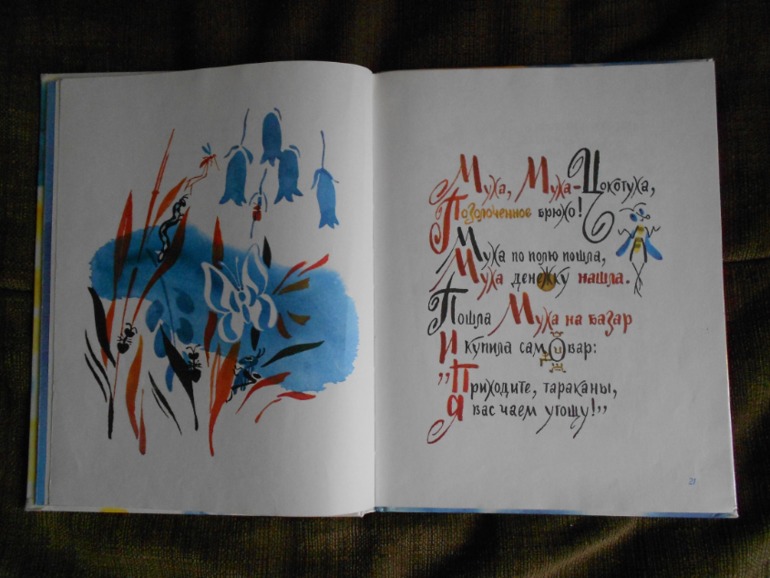 Муха, Муха-Цокотуха,
Позолоченное брюхо!
Муха по полю пошла,
Муха денежку нашла.
Пошла Муха на базар
И купила самовар:
"Приходите, тараканы,
Я вас чаем угощу!"
21